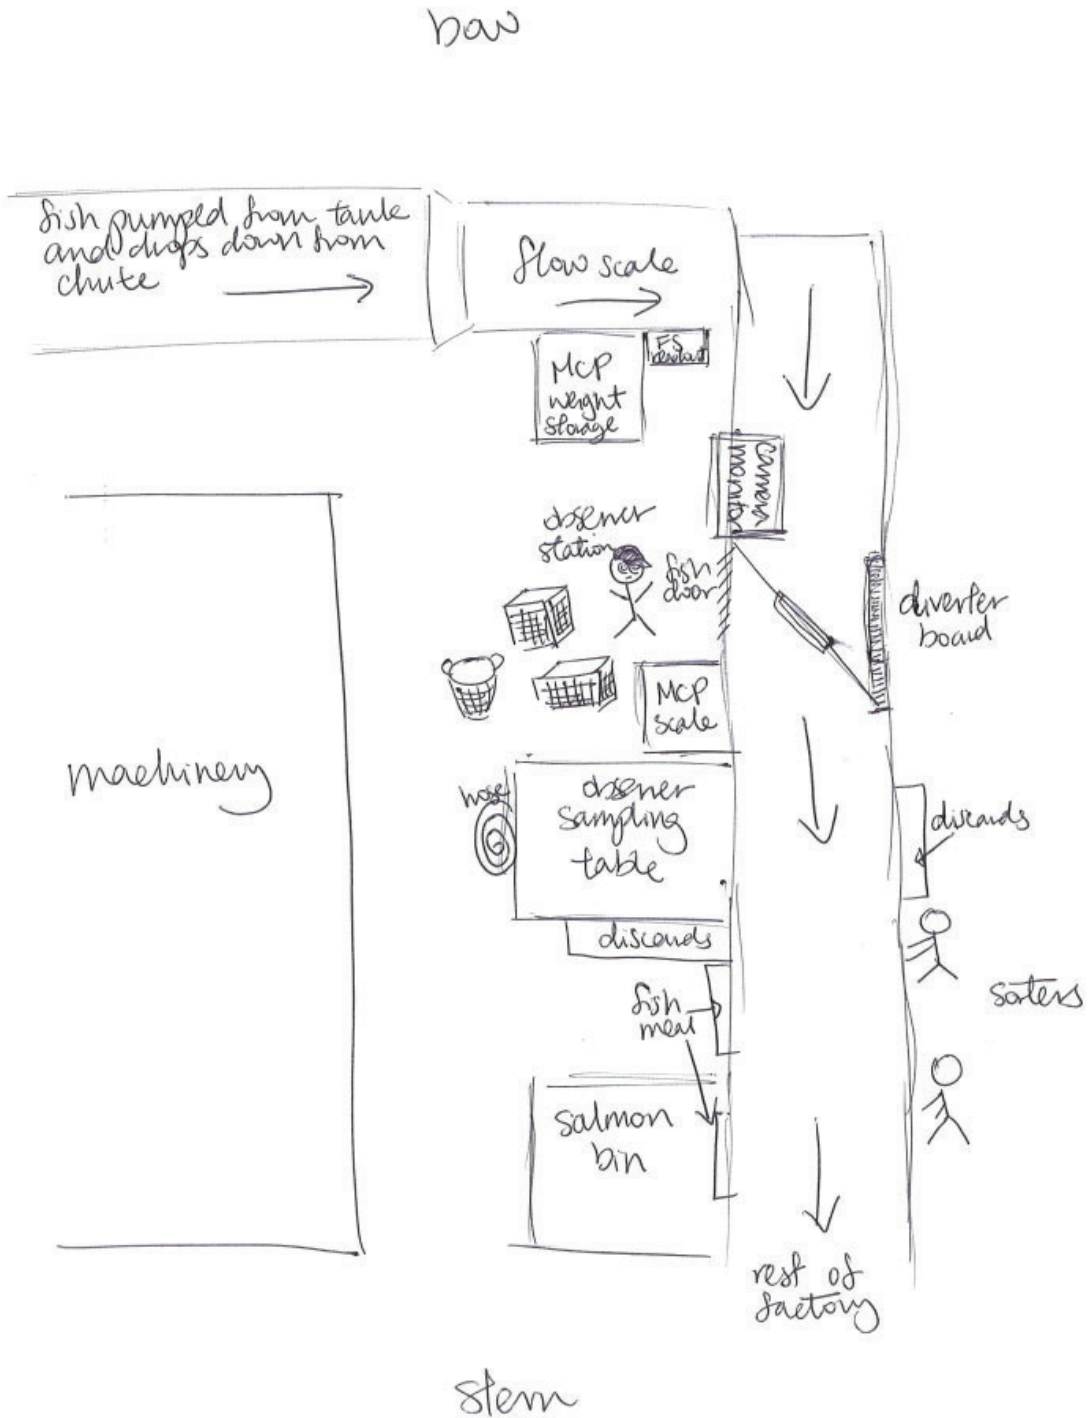 bow
fish pumped from tank
and drops down from
chute
flow scale
FS
MCP
weight
storage
camera
monitor
observer
station
fish
door
diverter
board
MCP
scale
machinery
hose
observer
sampling
table
discards
discards
fish
meal
sorters
salmon
bin
rest of
factory
stern